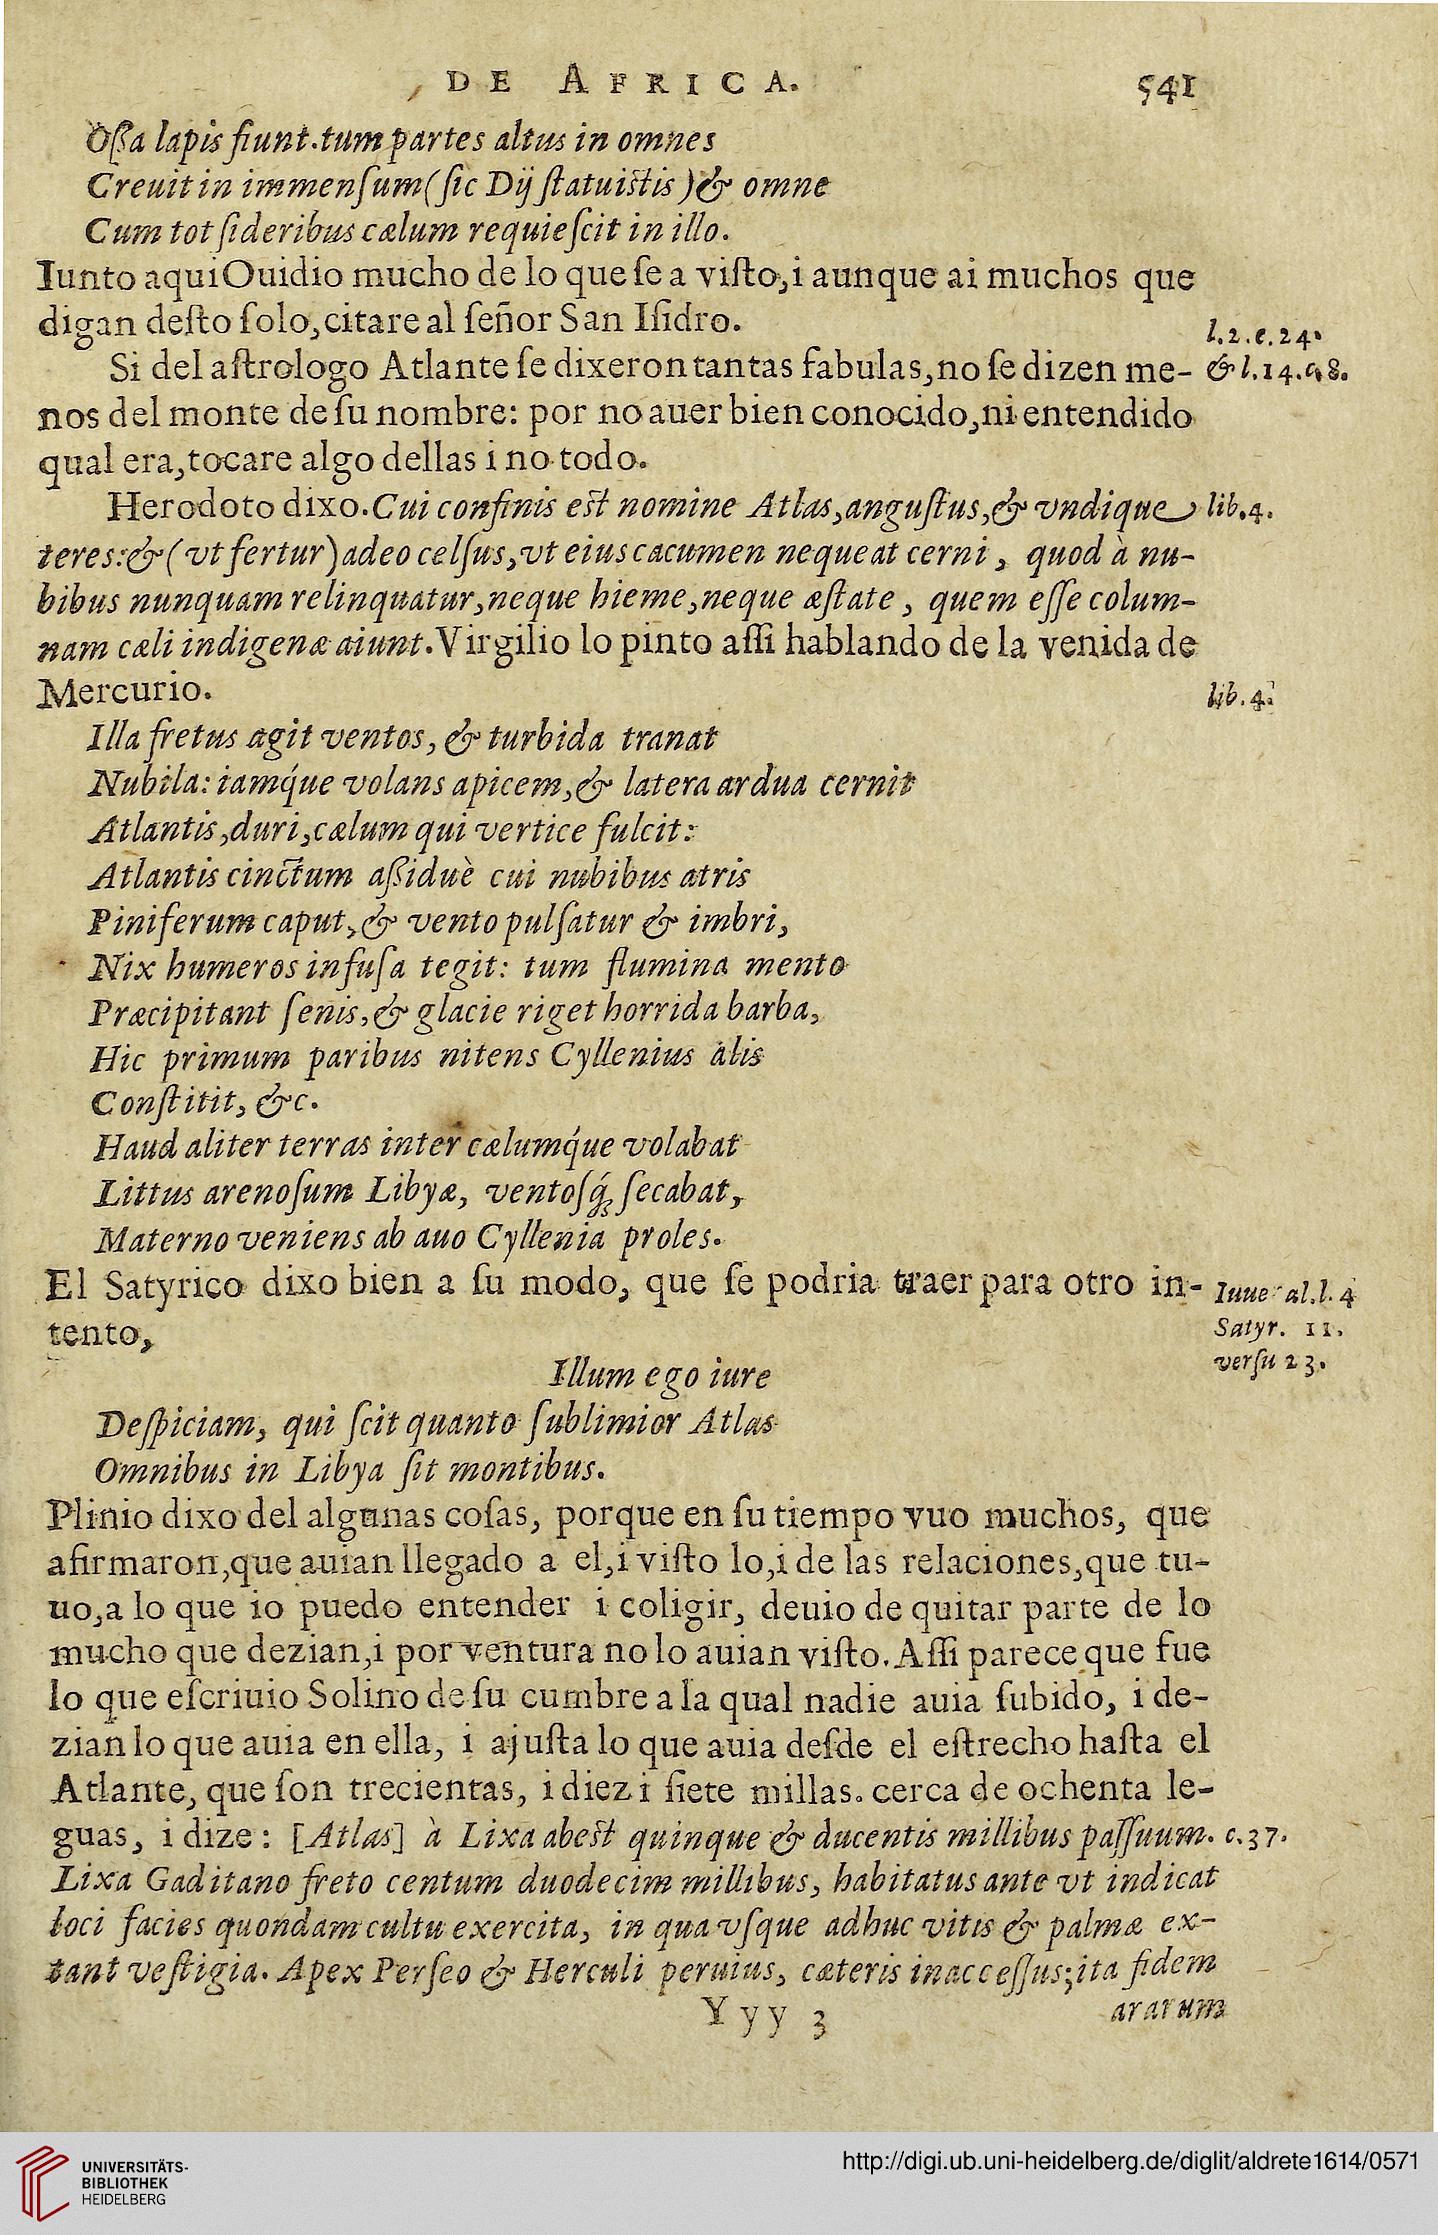 DE AFRICA. 541
Oſſa lapis fiunt.tum partes altus in omnes
Creuit in immenſum (ſic Dij ſtatuiſtis) & omne
Cum tot ſideribus cælum requieſcit in illo.
Iunto aqui Ouidio mucho de lo que ſe a viſto, i aunque ai muchos que
digan deſto ſolo, citare al ſeñor San Iſidro.
l.2.c.24.
Si del aſtrologo Atlante ſe dixeron tantas fabulas, no ſe dizen me- & l.14.c.8.
nos del monte de ſu nombre: por no auer bien conocido, ni entendido
qual era, tocare algo dellas i no todo.
Herodoto dixo. Cui confinis eſt nomine Atlas, anguſtus, & vndique lib.4.
teres: & (vt fertur) adeo celſus, vt eius cacumen nequeat cerni, quod à nu-
bibus nunquam relinquatur, neque hieme, neque æſtate, quem eſſe colum-
nam cæli indigenæ aiunt. Virgilio lo pinto aſſi hablando de la venida de
Mercurio. lib.4.
Illa fretus agit ventos, & turbida tranat
Nubila: iamq́ue volans apicem, & latera ardua cernit
Atlantis, duri, cælum qui vertice fulcit:
Atlantis cinctum aſſiduè cui nubibus atris
Piniferum caput, & vento pulſatur & imbri,
Nix humeros infuſa tegit: tum flumina mento
Præcipitant ſenis, & glacie riget horrida barba,
Hic primum paribus nitens Cyllenius alis
Conſtitit, &c.
Haud aliter terras inter cælumq́ue volabat
Littus arenoſum Libyæ, ventoſq́; ſecabat,
Materno veniens ab auo Cyllenia proles.
El Satyrico dixo bien a ſu modo, que ſe podria traer para otro in- Iuuenal.l.4
tento, Satyr. 11.
verſu 23.
Illum ego iure
Deſpiciam, qui ſcit quanto ſublimior Atlas
Omnibus in Libya ſit montibus.
Plinio dixo del algunas coſas, porque en ſu tiempo vuo muchos, que
afirmaron, que auian llegado a el, i viſto lo, i de las relaciones, que tu-
uo, a lo que io puedo entender i coligir, deuio de quitar parte de lo
mucho que dezian, i por ventura no lo auian viſto. Aſſi parece que fue
lo que eſcriuio Solino de ſu cumbre a la qual nadie auia ſubido, i de-
zian lo que auia en ella, i ajuſta lo que auia deſde el eſtrecho haſta el
Atlante, que ſon trecientas, i diez i ſiete millas. cerca de ochenta le-
guas, i dize: [Atlas] à Lixa abeſt quinque & ducentis millibus paſſuum. c.37.
Lixa Gaditano freto centum duodecim millibus, habitatus ante vt indicat
loci facies quondam cultu exercita, in qua vſque adhuc vitis & palmæ ex-
tant veſtigia. Apex Perſeo & Herculi peruius, cæteris inacceſſus; ita fidem
Yyy 3 ararum
UNIVERSITÄTS-
BIBLIOTHEK
HEIDELBERG
http://digi.ub.uni-heidelberg.de/diglit/aldrete1614/0571